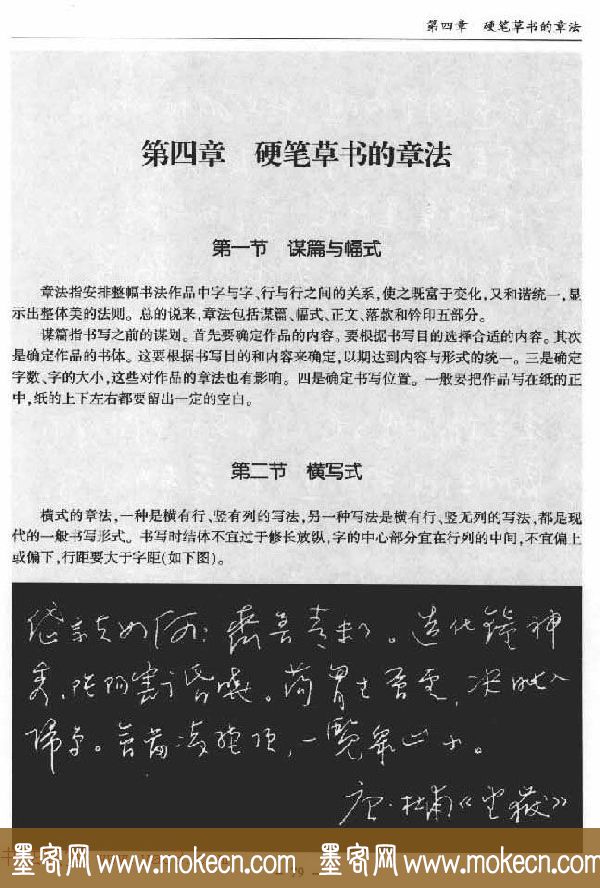 第四章 硬笔草书的章法
第四章 硬笔草书的章法
第一节 谋篇与幅式
章法指安排整幅书法作品中字与字、行与行之间的关系,使之既富于变化,又和谐统一,显
示出整体美的法则。总的说来,章法包括谋篇、幅式、正文、落款和钤印五部分。
谋篇指书写之前的谋划。首先要确定作品的内容。要根据书写目的选择合适的内容。其次
是确定作品的书体。这要根据书写目的和内容来确定,以期达到内容与形式的统一。三是确定
字数、字的大小,这些对作品的章法也有影响。四是确定书写位置。一般要把作品写在纸的正
中,纸的上下左右都要留出一定的空白。
第二节 横写式
横式的章法,一种是横有行、竖有列的写法,另一种写法是横有行、竖无列的写法,都是现
代的一般书写形式。书写时结体不宜过于修长放纵,字的中心部分宜在行列的中间,不宜偏上
或偏下,行距要大于字距(如下图)。
岱宗夫如何?齐鲁青未了。造化钟神
秀,阴阳割昏晓。荡胸生层云,决眦入
归鸟。会当凌绝顶,一览众山小。
唐·杜甫《望岳》
墨客网 www.mokecn.com 墨客网 www.mokecn.com